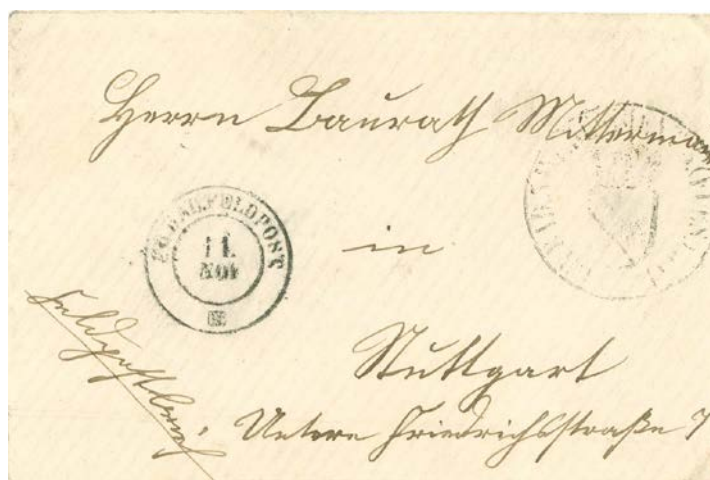 Herrn Baurath Mittermaier
GR.BAD.FELDPOST
11.
NOV
in
Feldpostbrief.
Stuttgart
Untere Friedrichsstraße 7